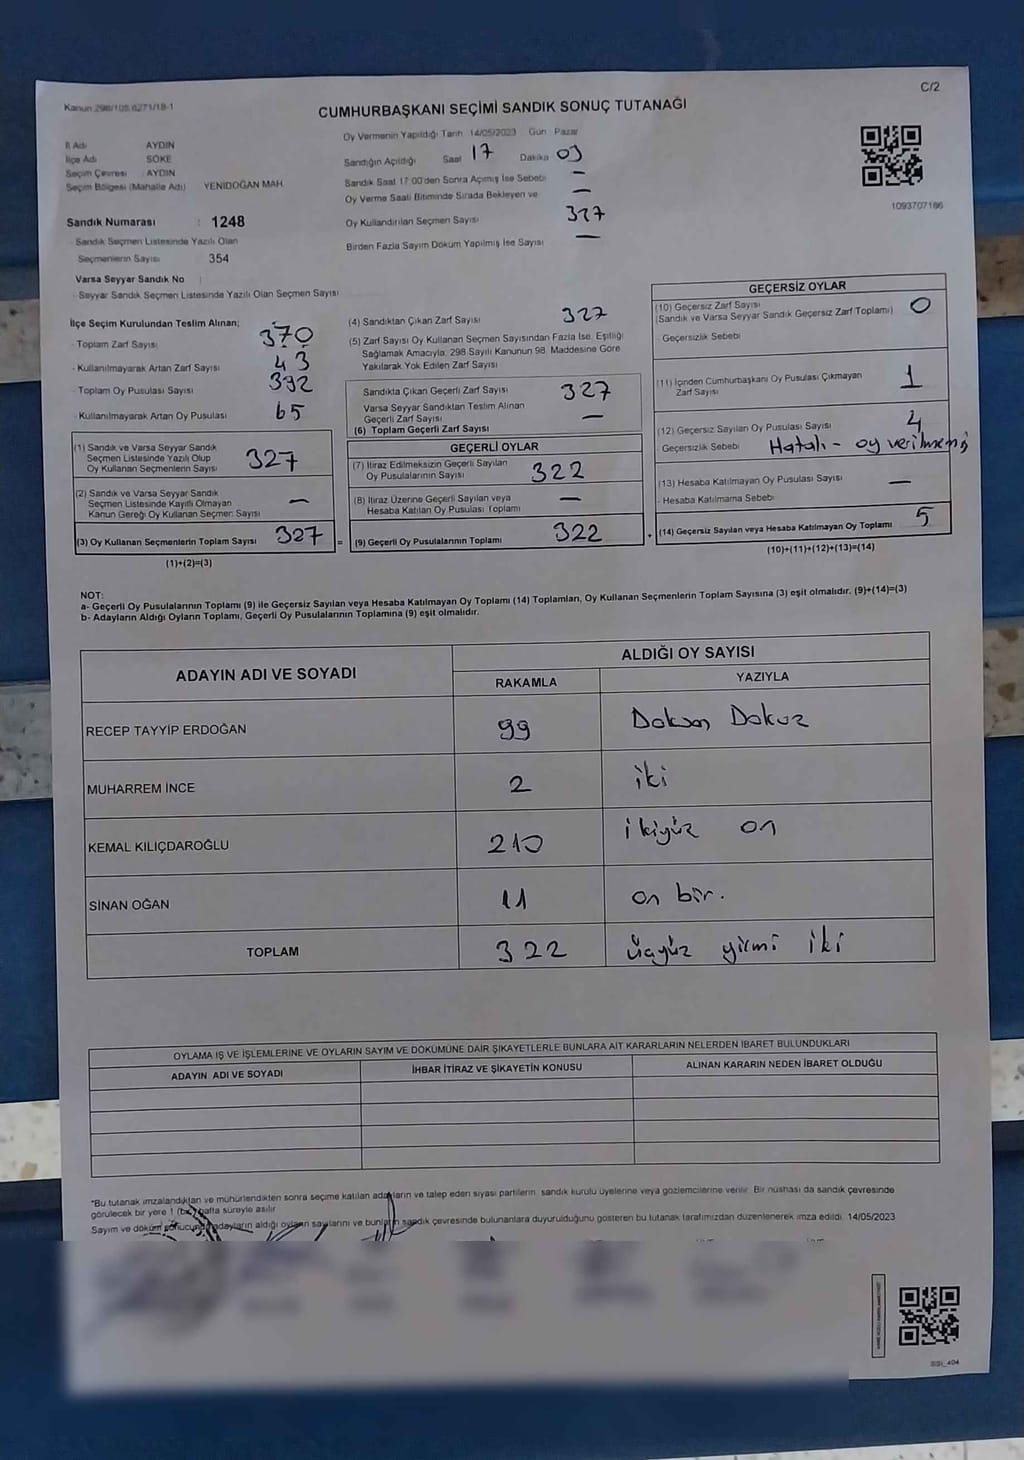 Kanun 298/105,6271/18-1
C/2
CUMHURBAŞKANI SEÇİMİ SANDIK SONUÇ TUTANAĞI
İl Adı AYDIN
İlçe Adı SÖKE
Seçim Çevresi : AYDIN
Seçim Bölgesi (Mahalle Adı) YENİDOĞAN MAH.
Sandık Numarası : 1248
- Sandık Seçmen Listesinde Yazılı Olan
Seçmenlerin Sayısı 354
Varsa Seyyar Sandık No :
- Seyyar Sandık Seçmen Listesinde Yazılı Olan Seçmen Sayısı
Oy Vermenin Yapıldığı Tarih 14/05/2023 Gün Pazar
Sandığın Açıldığı Saat 17 Dakika 03
Sandık Saat 17:00'den Sonra Açılmış İse Sebebi -
Oy Verme Saati Bitiminde Sırada Bekleyen ve -
Oy Kullandırılan Seçmen Sayısı 327
Birden Fazla Sayım Döküm Yapılmış İse Sayısı -
1093707186
İlçe Seçim Kurulundan Teslim Alınan;
- Toplam Zarf Sayısı 370
- Kullanılmayarak Artan Zarf Sayısı 43
- Toplam Oy Pusulası Sayısı 392
- Kullanılmayarak Artan Oy Pusulası 65
(1) Sandık ve Varsa Seyyar Sandık
Seçmen Listesinde Yazılı Olup
Oy Kullanan Seçmenlerin Sayısı 327
(2) Sandık ve Varsa Seyyar Sandık
Seçmen Listesinde Kayıtlı Olmayan
Kanun Gereği Oy Kullanan Seçmen Sayısı -
(3) Oy Kullanan Seçmenlerin Toplam Sayısı 327 =
(1)+(2)=(3)
(4) Sandıktan Çıkan Zarf Sayısı 327
(5) Zarf Sayısı Oy Kullanan Seçmen Sayısından Fazla İse, Eşitliği
Sağlamak Amacıyla, 298 Sayılı Kanunun 98. Maddesine Göre
Yakılarak Yok Edilen Zarf Sayısı
Sandıkta Çıkan Geçerli Zarf Sayısı 327
Varsa Seyyar Sandıktan Teslim Alınan
Geçerli Zarf Sayısı -
(6) Toplam Geçerli Zarf Sayısı
GEÇERLİ OYLAR
(7) İtiraz Edilmeksizin Geçerli Sayılan
Oy Pusulalarının Sayısı 322
(8) İtiraz Üzerine Geçerli Sayılan veya
Hesaba Katılan Oy Pusulası Toplamı -
(9) Geçerli Oy Pusulalarının Toplamı 322 +
GEÇERSİZ OYLAR
(10) Geçersiz Zarf Sayısı 0
(Sandık ve Varsa Seyyar Sandık Geçersiz Zarf Toplamı)
- Geçersizlik Sebebi
(11) İçinden Cumhurbaşkanı Oy Pusulası Çıkmayan
Zarf Sayısı 1
(12) Geçersiz Sayılan Oy Pusulası Sayısı 4
Geçersizlik Sebebi Hatalı - oy verilmemiş
(13) Hesaba Katılmayan Oy Pusulası Sayısı -
- Hesaba Katılmama Sebebi
(14) Geçersiz Sayılan veya Hesaba Katılmayan Oy Toplamı 5
(10)+(11)+(12)+(13)=(14)
NOT:
a- Geçerli Oy Pusulalarının Toplamı (9) ile Geçersiz Sayılan veya Hesaba Katılmayan Oy Toplamı (14) Toplamları, Oy Kullanan Seçmenlerin Toplam Sayısına (3) eşit olmalıdır. (9)+(14)=(3)
b- Adayların Aldığı Oyların Toplamı, Geçerli Oy Pusulalarının Toplamına (9) eşit olmalıdır.
ADAYIN ADI VE SOYADI ALDIĞI OY SAYISI
RAKAMLA YAZIYLA
RECEP TAYYİP ERDOĞAN 99 Doksan Dokuz
MUHARREM İNCE 2 iki
KEMAL KILIÇDAROĞLU 210 ikiyüz on
SİNAN OĞAN 11 on bir.
TOPLAM 322 üçyüz yirmi iki
OYLAMA İŞ VE İŞLEMLERİNE VE OYLARIN SAYIM VE DÖKÜMÜNE DAİR ŞİKAYETLERLE BUNLARA AİT KARARLARIN NELERDEN İBARET BULUNDUKLARI
ADAYIN ADI VE SOYADI İHBAR İTİRAZ VE ŞİKAYETİN KONUSU ALINAN KARARIN NEDEN İBARET OLDUĞU
*Bu tutanak imzalandıktan ve mühürlendikten sonra seçime katılan adayların ve talep eden siyasi partilerin sandık kurulu üyelerine veya gözlemcilerine verilir. Bir nüshası da sandık çevresinde
görülecek bir yere 1 (bir) hafta süreyle asılır.
Sayım ve döküm sonucunda adayların aldığı oyların sayılarını ve bunların sandık çevresinde bulunanlara duyurulduğunu gösteren bu tutanak tarafımızdan düzenlenerek imza edildi. 14/05/2023
SSI_404